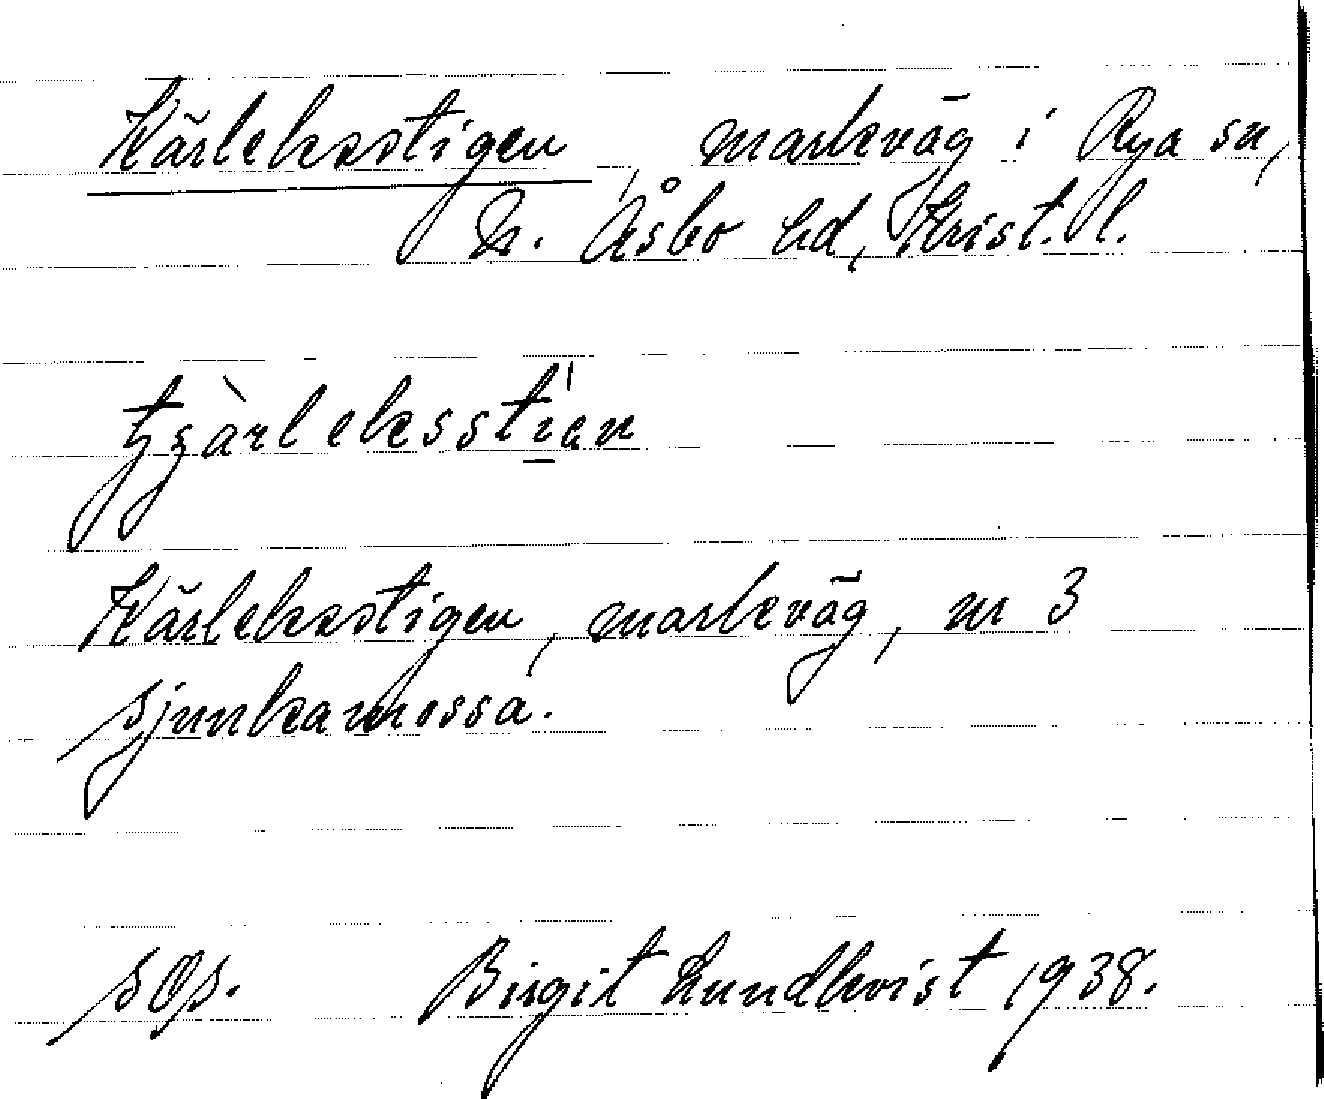 Kärleksstigen, markväg i Rya sn,
N. Åsbo hd, Krist. l.
Kärleksstigen, markväg, nr 3
Sjunkamossa.
SOS. Birgit Lundkvist 1938.